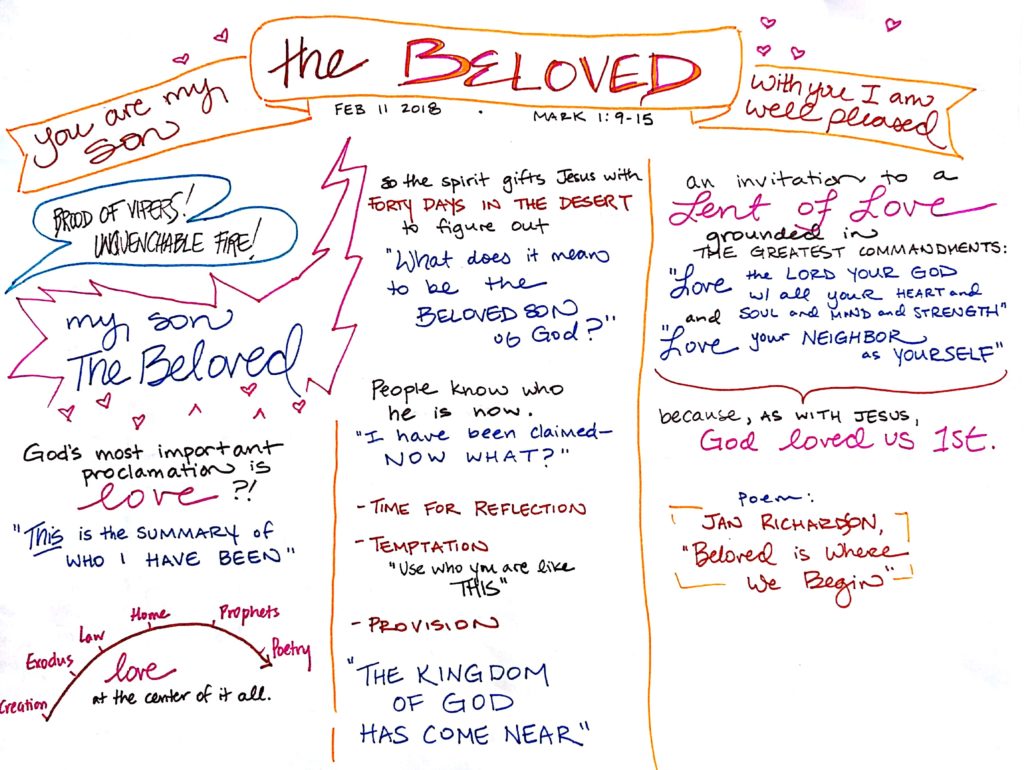 the BELOVED
You are my
son
with you I am
well pleased
FEB 11 2018 · MARK 1:9-15
BROOD OF VIPERS!
UNQUENCHABLE FIRE!
my son
The Beloved
God's most important
proclamation is
love ?!
"This is the SUMMARY of
WHO I HAVE BEEN"
Creation
Exodus
Law
Home
Prophets
Poetry
love
at the center of it all.
so the spirit gifts Jesus with
FORTY DAYS IN THE DESERT
to figure out
"What does it mean
to be the
BELOVED SON
of God?"
People know who
he is now.
"I have been claimed-
NOW WHAT?"
- TIME FOR REFLECTION
- TEMPTATION
"Use who you are like
THIS"
- PROVISION
"THE KINGDOM
OF GOD
HAS COME NEAR"
an invitation to a
Lent of Love
grounded in
THE GREATEST COMMANDMENTS:
"Love the LORD YOUR GOD
w/ all your HEART and
and SOUL and MIND and STRENGTH"
"Love your NEIGHBOR
as YOURSELF"
because, AS WITH JESUS,
God loved us 1st.
Poem:
JAN RICHARDSON,
"Beloved is Where
We Begin"